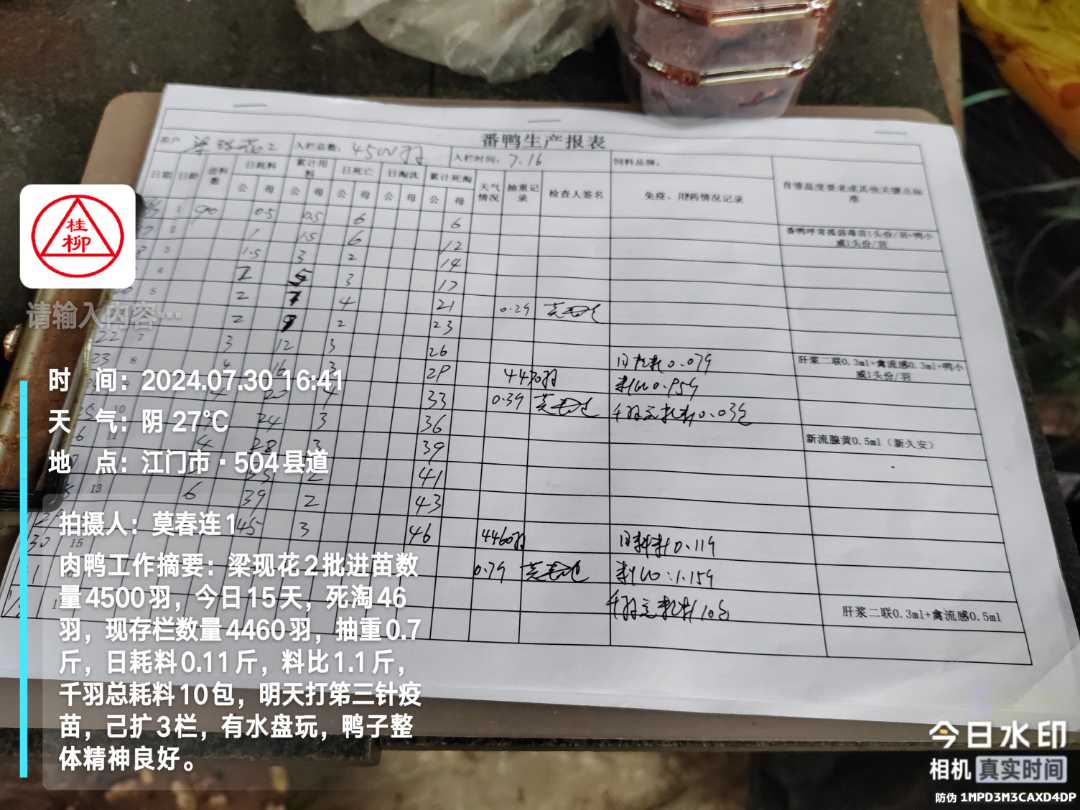 番鸭生产报表
客户
入栏总数: 4500羽
入栏时间: 7.16
饲料品牌:
日期 日龄 进料数 日耗料 累计用料 日死亡 日淘汰 累计死淘 天气情况 抽重记录 检查人签名 免疫、用药情况记录
公 母 公 母 公 母 公 母 公 母
0.5 0.5 6 6
1 1.5 6 12
番鸭呼肯孤弱毒苗1头份/羽+鸭小
威1头份/羽
1.5 3 2 14
2 5 3 17
2 7 4 21 0.29
2 9 2 23
22 7 3 12 3 26
23 8 29 4470羽 日耗料0.079
肝浆二联0.3ml+禽流感0.3ml+鸭小
威1头份/羽
33 0.39 料比0.959
10 24 3 36
4 28 3 39
新流腺黄0.5ml（新久安）
41
13 6 39 2 43
45 3 46 4460羽 日耗料0.119
15 0.79 料比:1.159
肝浆二联0.3ml+禽流感0.5ml
桂
柳
请输入内容…
时 间: 2024.07.30 16:41
天 气: 阴 27℃
地 点: 江门市·504县道
拍摄人: 莫春连1
肉鸭工作摘要: 梁现花2批进苗数
量4500羽，今日15天，死淘46
羽，现存栏数量4460羽，抽重0.7
斤，日耗料0.11斤，料比1.1斤，
千羽总耗料10包，明天打第三针疫
苗，己扩3栏，有水盘玩，鸭子整
体精神良好。
今日水印
相机 真实时间
防伪 1MPD3M3CAXD4DP